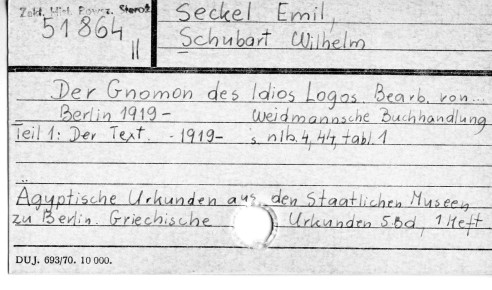 Zakł. Hist. Powsz. Staroż.
51864
II
Seckel Emil,
Schubart Wilhelm
Der Gnomon des Idios Logos. Bearb. von...
Berlin 1919- Weidmannsche Buchhandlung
Teil 1: Der Text. -1919- s. nlb. 4, 44, tabl. 1
Ägyptische Urkunden aus den Staatlichen Museen
zu Berlin. Griechische Urkunden 5 Bd, 1 Heft
DUJ. 693/70. 10 000.